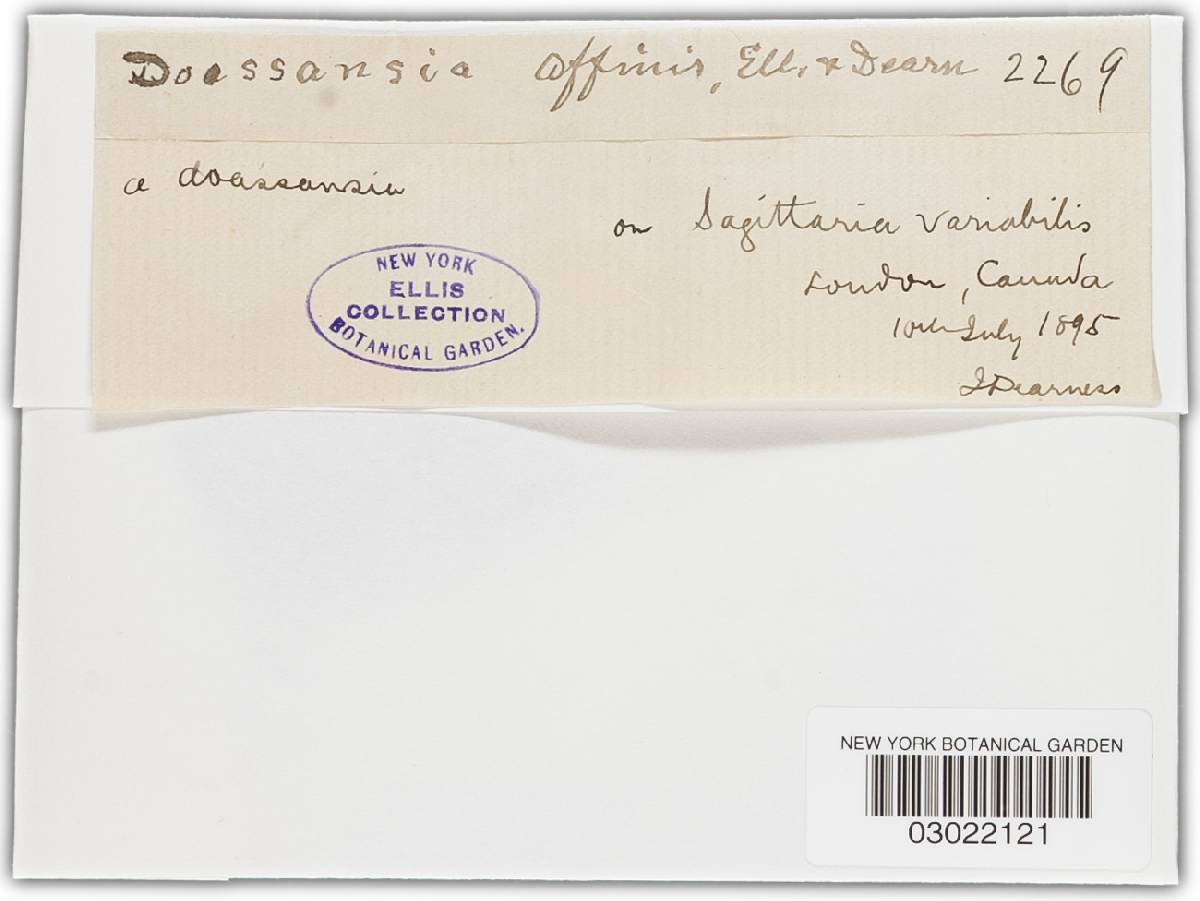 Doassansia affinis, Ell. & Dearn 2269
a doassansia
on Sagittaria variabilis
London, Canada
10th July 1895
J Dearness
NEW YORK
ELLIS
COLLECTION
BOTANICAL GARDEN.
NEW YORK BOTANICAL GARDEN
03022121